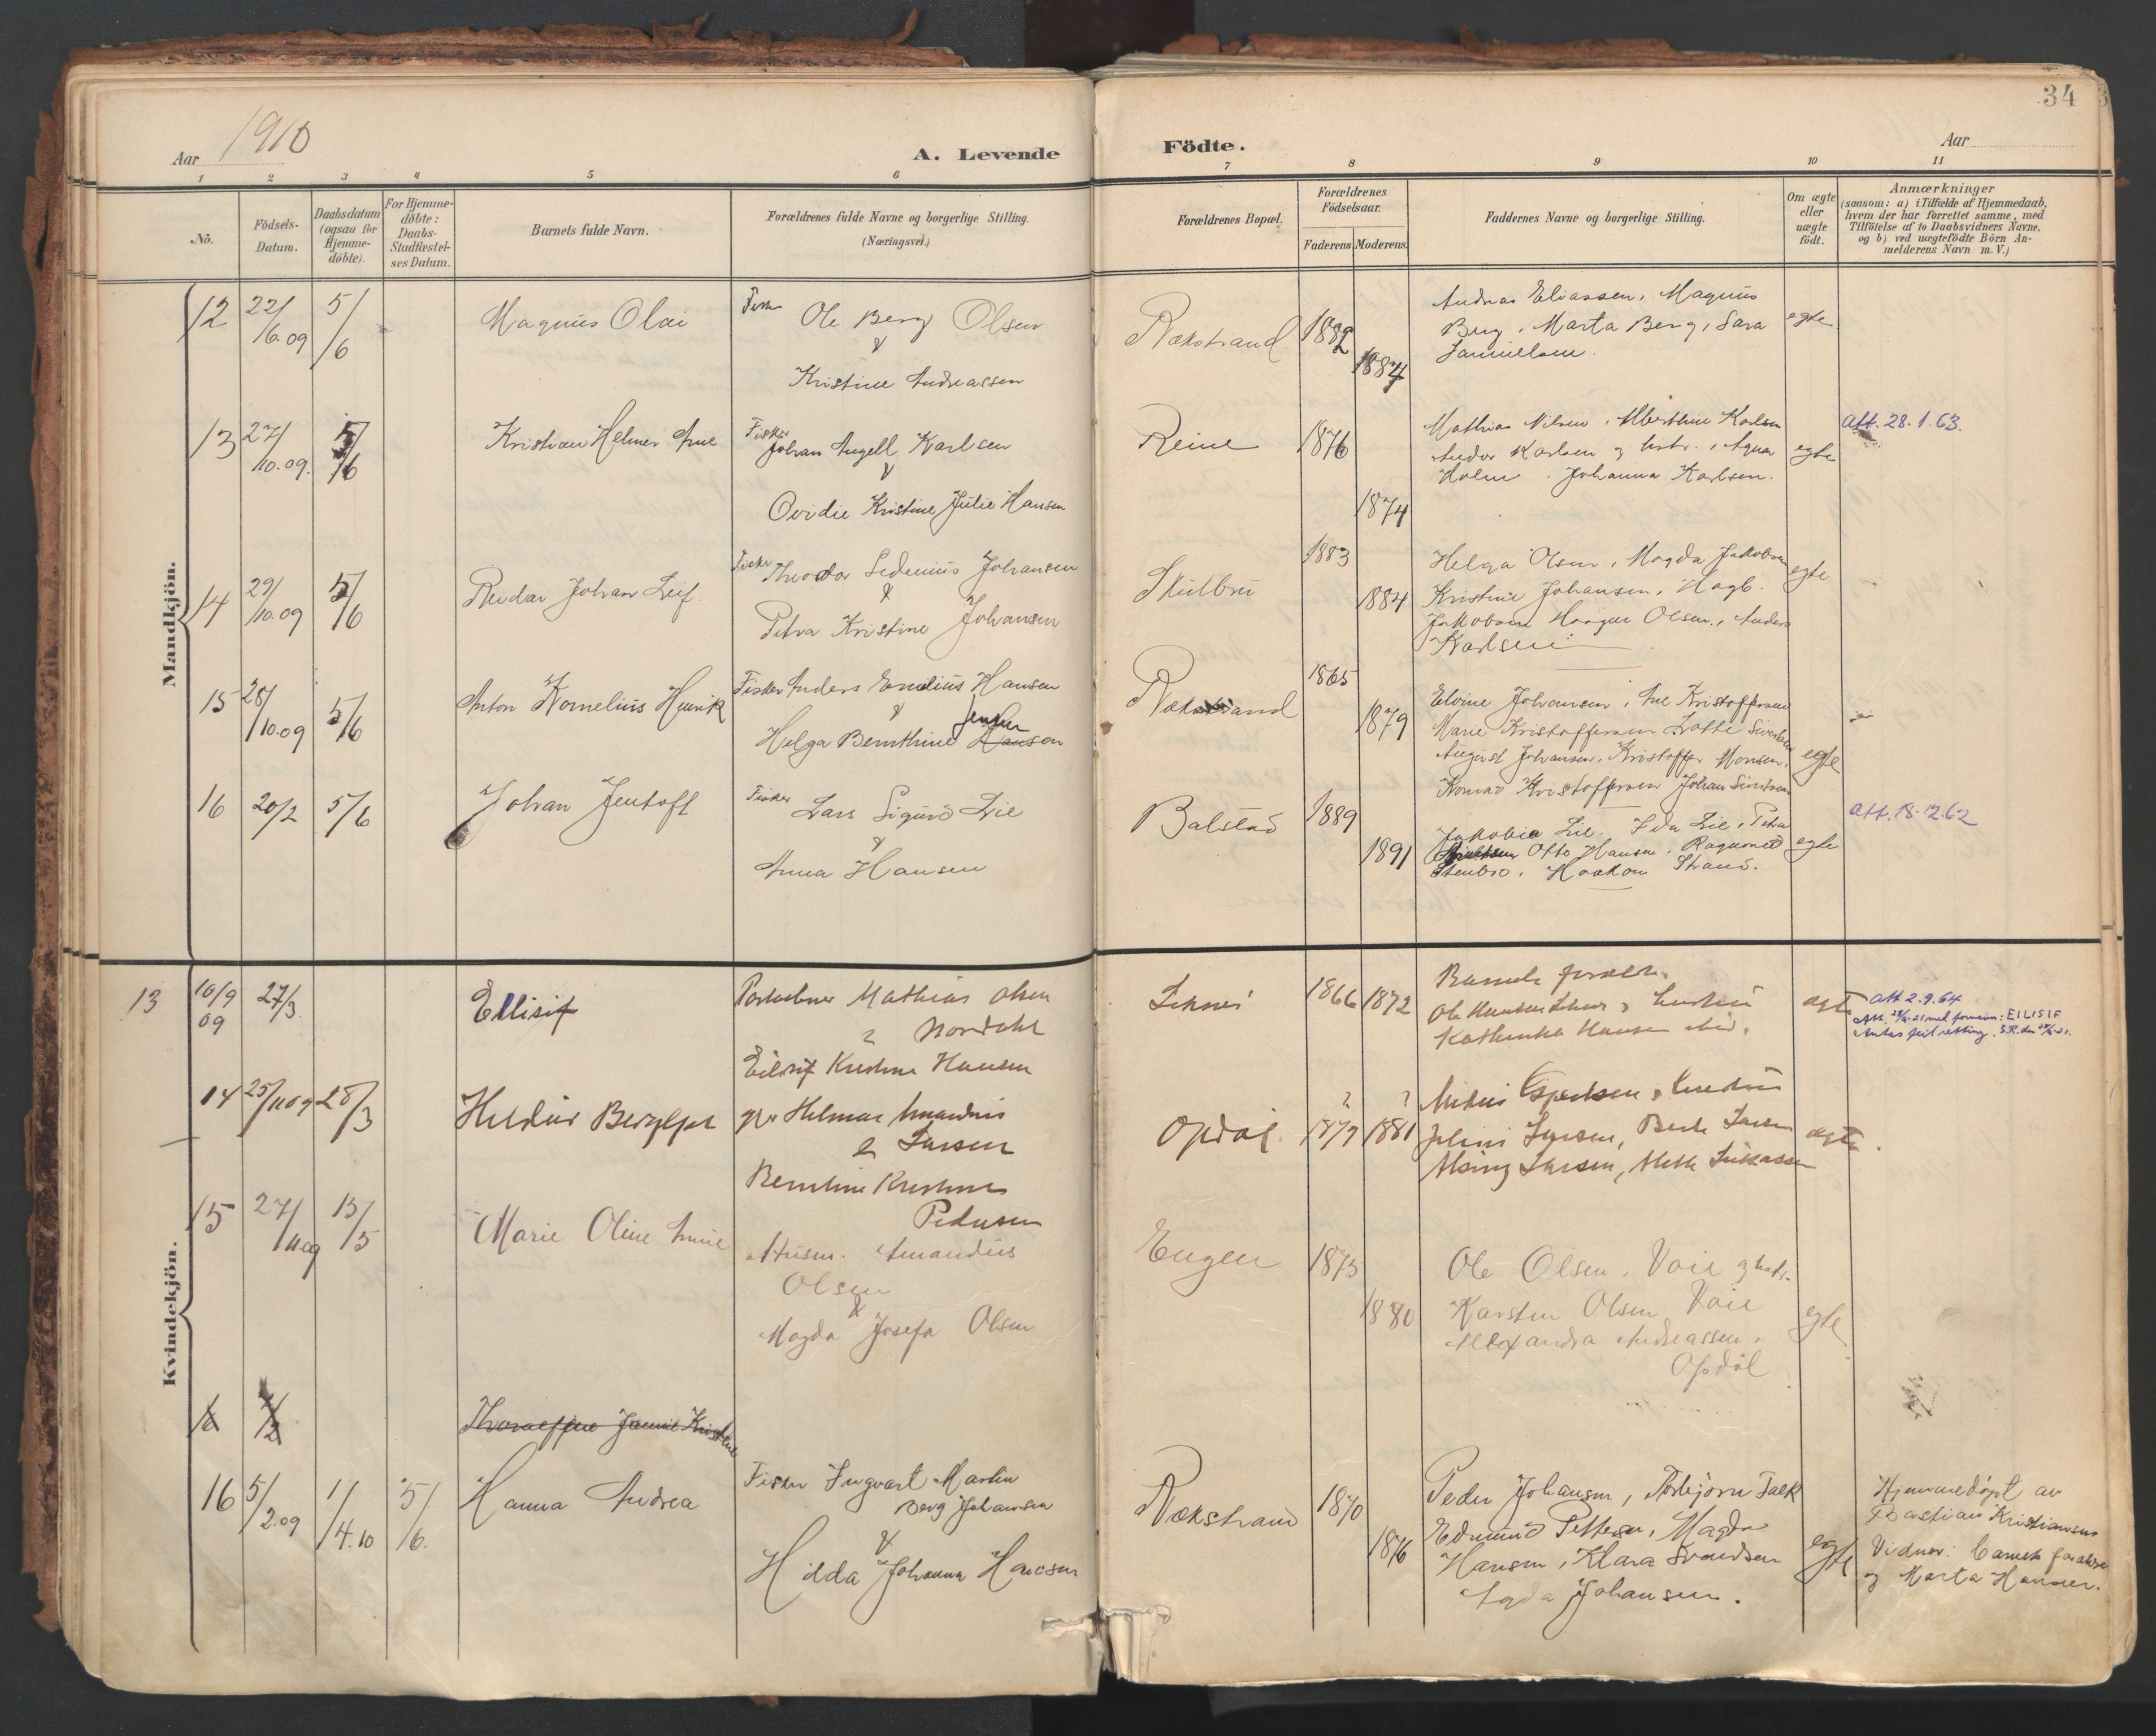 34
Aar 1910
A. Levende
Födte.
Aar
1 2 3 4 5 6 7 8 9 10 11
No.
Födsels-
Datum.
Daabsdatum
(ogsaa for
Hjemme-
döbte).
For Hjemme-
döbte:
Daabs-
Stadfæstel-
ses Datum.
Barnets fulde Navn.
Forældrenes fulde Navne og borgerlige Stilling.
(Næringsvei.)
Forældrenes Bopæl.
Forældrenes
Födselsaar.
Faderens Moderens.
Faddernes Navne og borgerlige Stilling.
Om ægte
eller
uægte
födt.
Anmærkninger
(saasom: a) i Tilfælde af Hjemmedaab,
hvem der har forrettet samme, med
Tilföielse af to Daabsvidners Navne,
og b) ved uægtefödte Börn An-
melderens Navn m. V.)
Mandkjön.
12 22/6.09 5/6 Magnus Olai
Fisker Ole Berg Olsen
&
Kristine Andreassen
Rækstrand 1882 1887
Andreas Eliassen, Magnus
Berg, Marta Berg, Sara
Samuelsen.
egte
13 27/10.09. 5/6 Kristian Helmer Arne
Fisker
Johan Angell Karlsen
&
Ovidie Kristine Julie Hansen
Reine 1876 1874
Mathias Nilsen, Albertine Karlsen
Andor Karlsen og hustr., Agna
Holm, Johanna Karlsen.
egte
Att. 28.1.63.
14 29/10.09 5/6 Reidar Johan Leif
Fisker Theodor Sedenius Johansen
&
Petra Kristine Johansen
Skulbru 1883 1884
Helga Olsen, Magda Jakobsen
Kristine Johansen, Hagb.
Jakobsen Olsen, Anders
Karlsen
egte
15 28/10.09 5/6 Anton Kornelius Henrik
Fisker Anders Emilius Hansen
&
Helga Bernthine Hansen
Rækstrand 1865 1879
Elvine Johansen, Kristoffersen
Marie Kristoffersen Lotte Sivertsen
August Johansen, Kristoffer Monsen,
Konrad Kristoffersen Johan Sivertsen
egte
16 20/2 5/6 Johan Jentoft
Fisker Lars Sigurd Lie
&
Anna Hansen
Balstad 1889 1891
Jakobie Lie. Ida Lie, Petra
Otto Hansen. Ragnvald
Stenbro, Haakon Strand.
egte
Att. 18.12.62
Kvindekjön.
13 10/9 09 27/3 Ellisif
Mathias Olsen
Nordahl
Eilisif Kristine Hansen
Leknes 1866 1872
Barnets foreldre.
Kathinka Hansen ibid.
ægte
Att 2.9.64
Att. 28/4-21 med fornavn: EILISIF
Antas feil retting. S.R. den 28/4-21.
14 25/11 09 28/3 Hildur Bergljot
Helmar Amandus
& Larsen
Bernthine Kristine
Pedersen
Opdøl. ? 1879 ? 1881
Julius Larsen, Berte Larsen
Larsen, Mette Lukassen
ægte.
15 27/11 09 15/5 Marie Oline Annie
Husm. Amandus
Olsen
&
Magda Josefa Olsen
Engen 1875 1880
Ole Olsen, Voie og hustr.
Karsten Olsen Voie
Alexandra Andreassen,
Opdøl
egte
16 5/2.09 1/4.10 5/6. Hanna Andrea
Fisker Ingvart Martin
Berg Johansen
&
Hilda Johanna Hansen
Rækstrand 1870 1876
Peder Johansen, Asbjørn Falk
Edmund Pettersen, Magda
Hansen, Klara Svendsen
Agda Johansen.
egte
Hjemmedøpt av
Bastian Kristiansen
Vidner: Barnets forældre
og Marta Hansen.